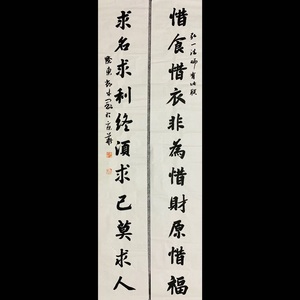 弘一法师
惜食惜衣非為惜財原惜福
求名求利终須求己莫求人